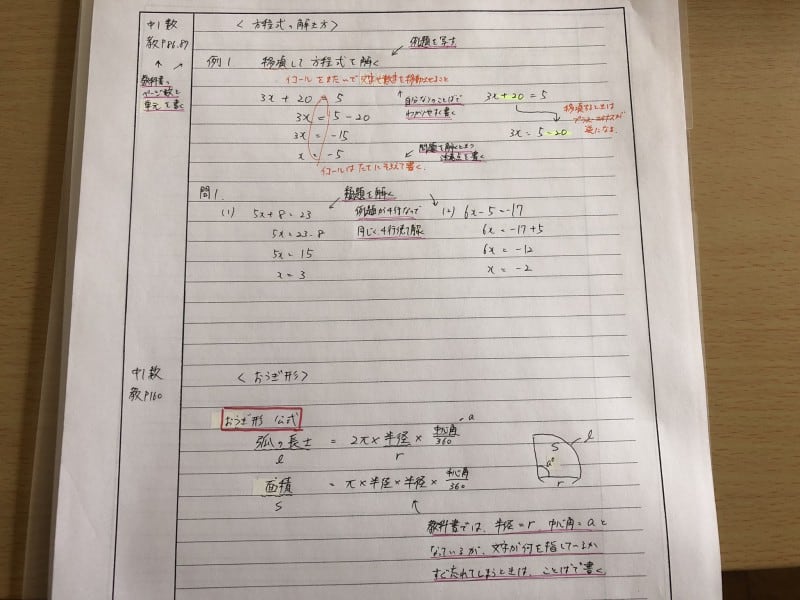 中1数 〈方程式の解き方〉
教P86.87
例題を写す
例1 移項して方程式を解く
教科書の
ページ数と
単元を書く
イコールをまたいで文字や数字を移動させること
3x + 20 = 5
3x = 5 - 20
3x = -15
x = -5
自分なりのことばで
わかりやすく書く
3x + 20 = 5
3x = 5 - 20
移項するときは
プラスマイナスが
逆になる
問題を解くときの
注意点を書く
イコールはたてにそろえて書く
問1.
類題を解く
(1) 5x + 8 = 23
5x = 23 - 8
5x = 15
x = 3
例題が4行なので
同じく4行使って解く
(2) 6x - 5 = -17
6x = -17 + 5
6x = -12
x = -2
中1数 〈おうぎ形〉
教P160
おうぎ形 公式
弧の長さ = 2π × 半径 × 中心角/360
l r a
面積 = π × 半径 × 半径 × 中心角/360
S
S l a° r
教科書では、半径=r、中心角=aと
なっているが、文字が何を指しているか
すぐ忘れてしまうときは、ことばで書く